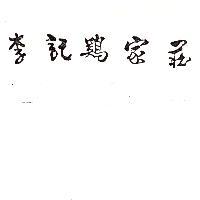 李記鷄家莊